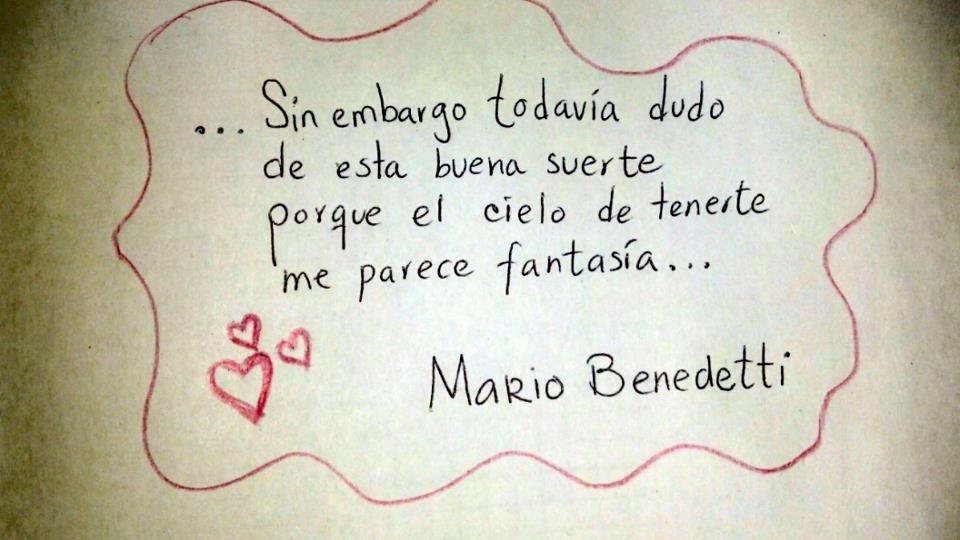 ... Sin embargo todavía dudo
de esta buena suerte
porque el cielo de tenerte
me parece fantasía...
Mario Benedetti